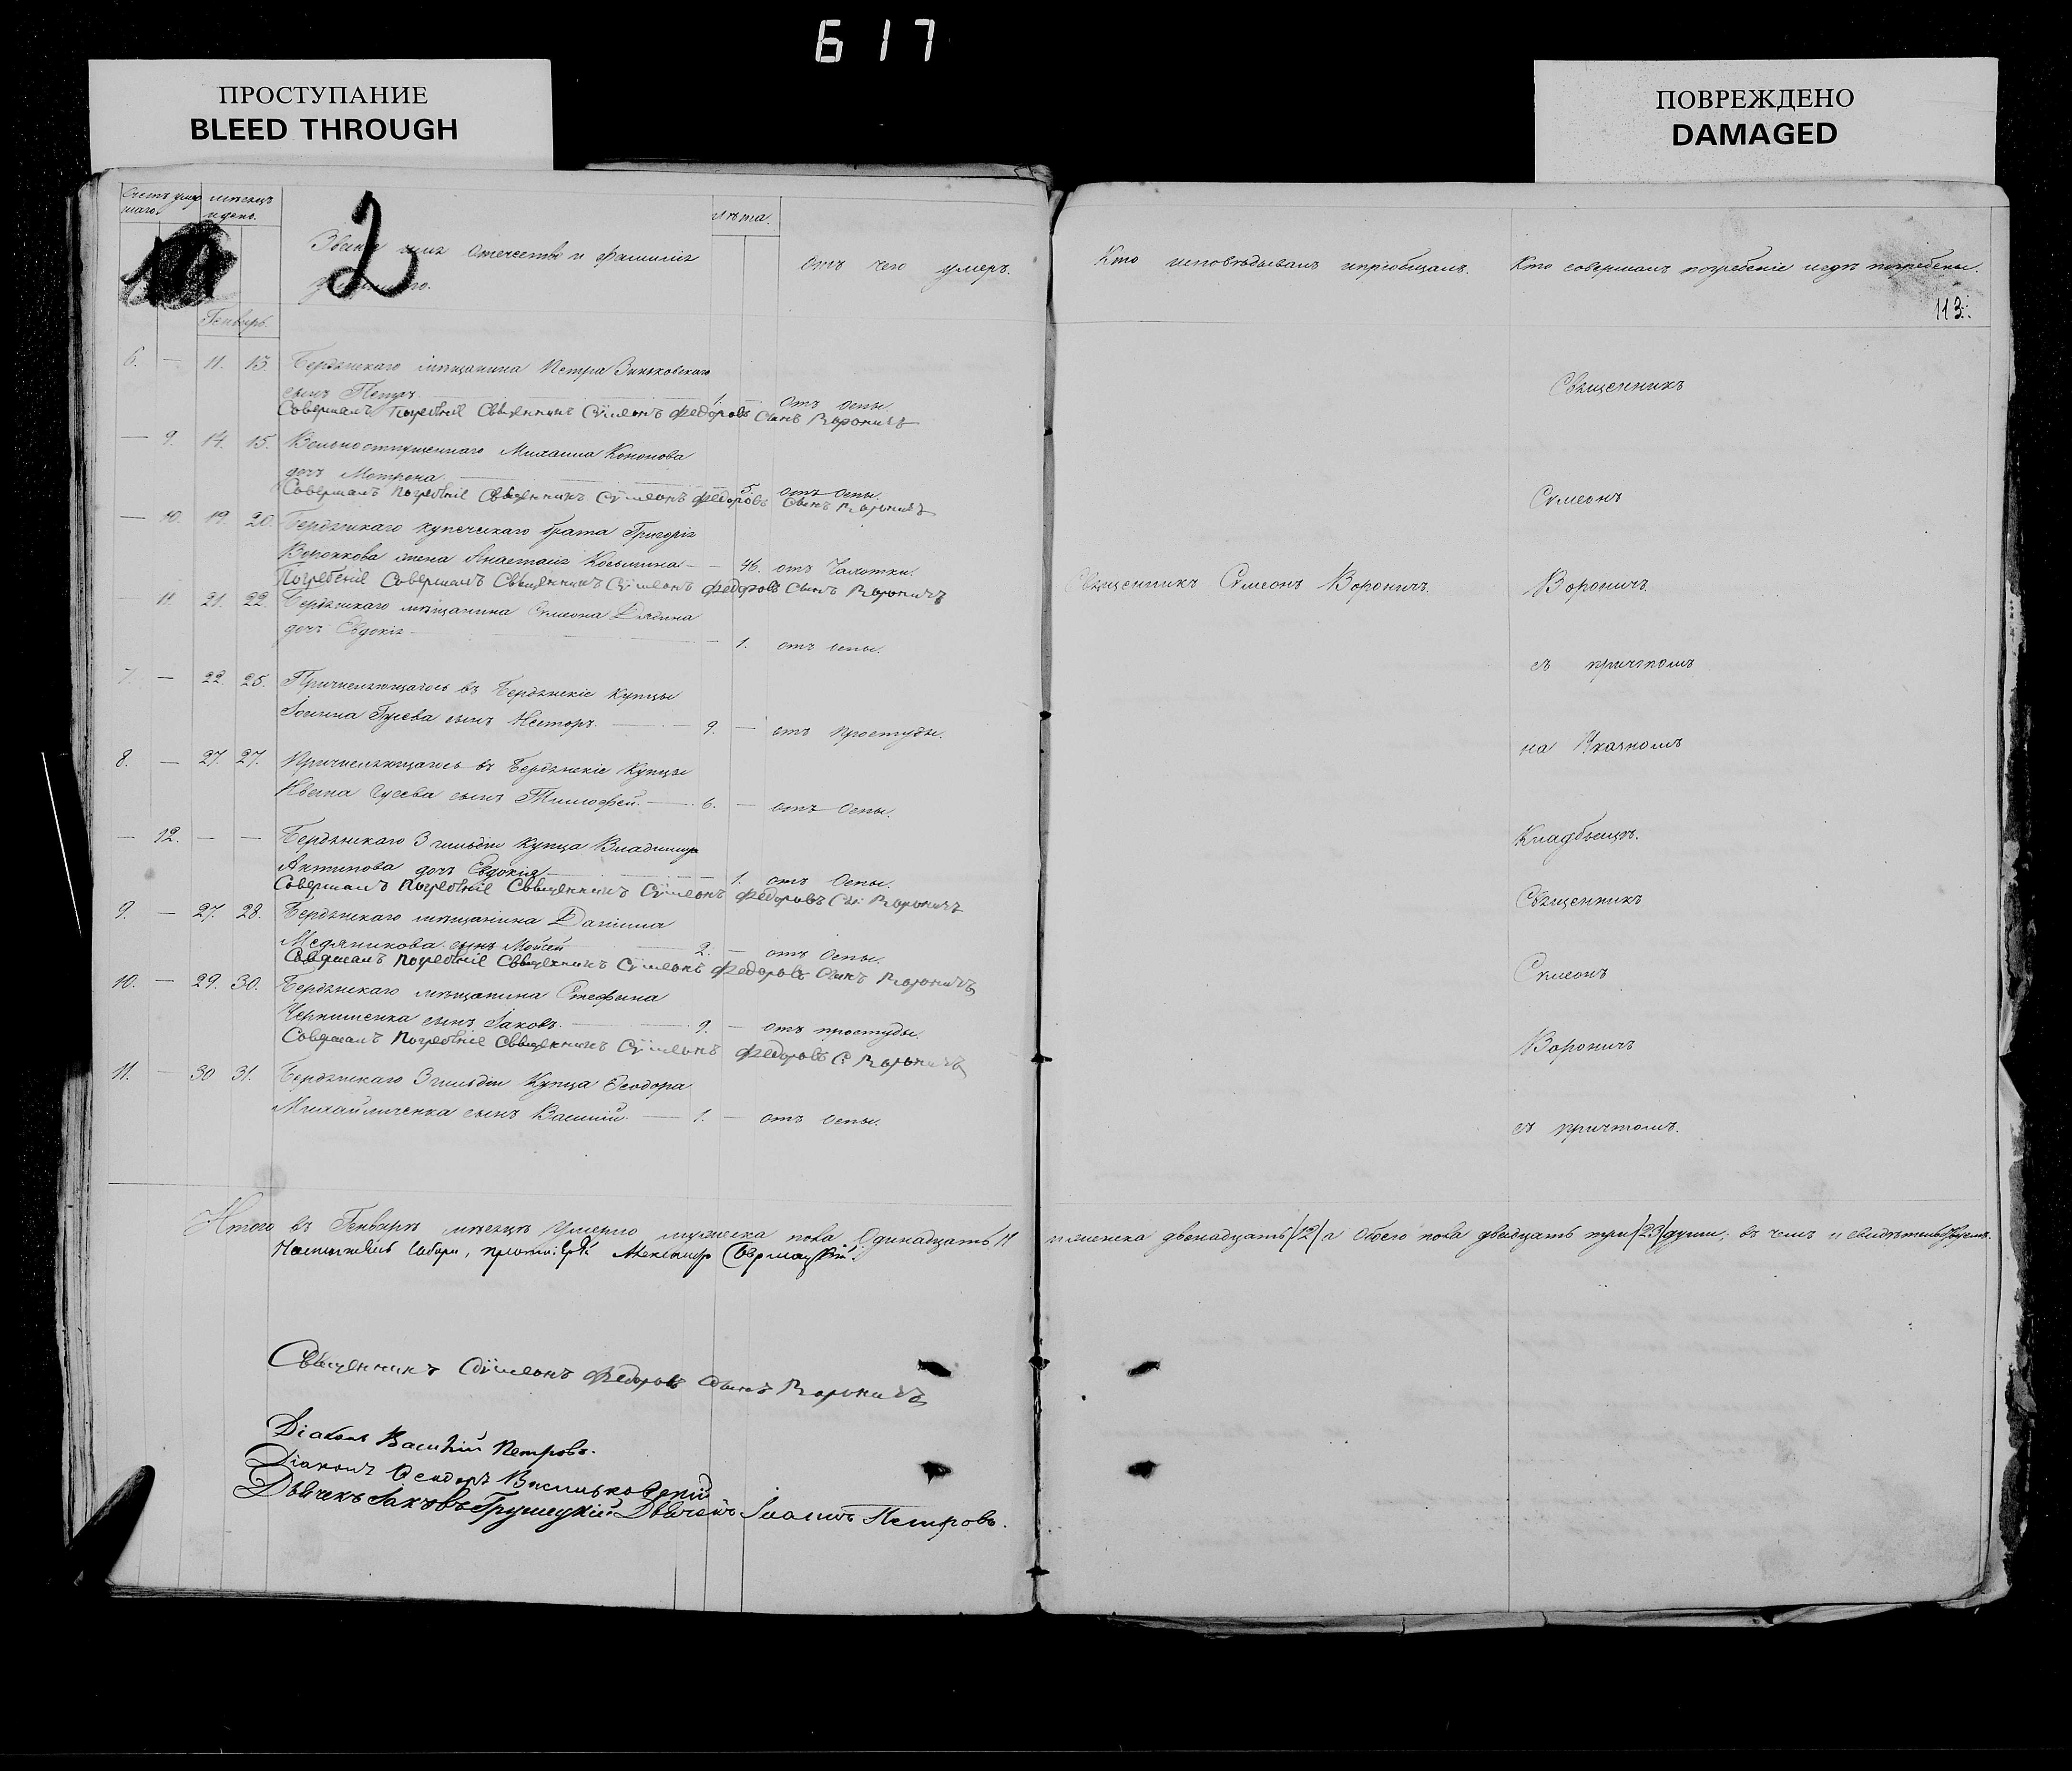 617
ПРОСТУПАНИЕ
BLEED THROUGH
ПОВРЕЖДЕНО
DAMAGED
Счетъ умер
шаго.
мѣсяцъ
и день.
2
Званіе имя отечество и фамилія
лѣта.
отъ чего умеръ.
Генварь.
6. — 11. 13. Бердянскаго мѣщанина Петра Зиньковскаго
сынъ Петръ. 1. — отъ оспы.
Совершалъ погребніе Священникъ Сүмеонъ Федоровъ Сынъ Вороничъ
— 9. 14. 15. Вольноотпущеннаго Михаила Кононова
дочъ Матрона 5. отъ оспы.
Совершалъ погребніе Священникъ Сүмеонъ Федоровъ Сынъ Вороничъ
— 10. 19. 20. Бердянскаго купеческаго брата Григорія
жена Анастасія Косьмина — 46. отъ Чахотки.
Погребеніе Совершалъ Священникъ Сүмеонъ Федоровъ Сынъ Вороничъ
— 11. 21. 22. Бердянскаго мѣщанина Сѵмеона Дядина
дочъ Евдокія — 1. отъ оспы.
7. — 22. 25. Причисляющагося въ Бердянскіе купцы
Іоанна Гусева сынъ Несторъ. — 9. — отъ простуды.
8. — 27. 27. Причисляющагось въ Бердянскіе Купцы
Ивана Гусева сынъ Тимофей. — 6. — отъ Оспы.
— 12. — — Бердянскаго 3 гильдіи купца Владимира
Антипова дочъ Евдокія — 1. отъ Оспы.
Совершалъ Погребніе Священникъ Сүмеонъ Федоровъ Сы: Вороничъ
9. — 27. 28. Бердянскаго мѣщанина Даніила
Медяникова сынъ Мойсей 2. — отъ Оспы.
Совершалъ погребніе Священникъ Сүмеонъ Федоровъ Сынъ Вороничъ
10. — 29. 30. Бердянскаго мѣщанина Стефана
сынъ Іаковъ. — 9. — отъ простуды.
Совершалъ Погребніе Священникъ Сүмеонъ Федоровъ С: Вороничъ
11. — 30 31. Бердянскаго 3 гильдіи Купца Ѳеодора
Михайличенка сынъ Василій. — 1. — отъ оспы.
Итого въ Генварѣ мѣсяцѣ умерло мужеска пола Одинадцать 11
Настоятель Собора, протоіерей Александръ
Священникъ Сүмеонъ Федоровъ Сынъ Вороничъ
Діаконъ Василій Петровъ.
Діаконъ Ѳеодоръ Васильковскій
Дьячекъ Іаковъ Грушецкій Дьячекъ Іоаннъ Петровъ.
Кто исповѣдывалъ и пріобщалъ.
Кто совершалъ погребеніе и гдѣ погребены.
113.
Священникъ
Сѵмеонъ
Священникъ Сѵмеонъ Вороничъ.
Вороничъ.
съ причтомъ
на
Кладбищѣ.
Священникъ
Сѵмеонъ
Вороничъ
съ причтомъ.
женска двенадцать /12/ а Обоего пола двадцать три /23/ души; въ чемъ и свидѣтельствуемъ.